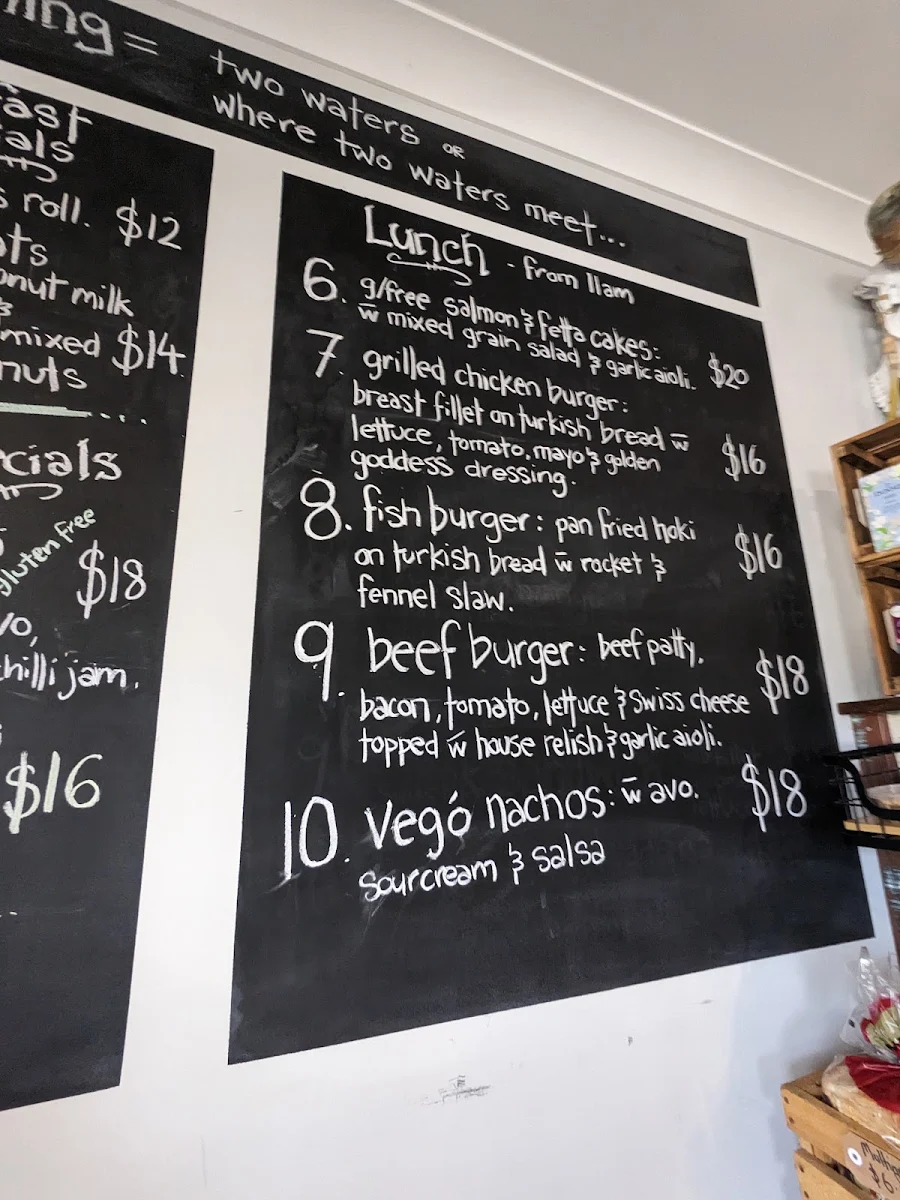 two waters OR
where two waters meet...
roll. $12
milk
mixed $14
nuts
gluten free
$18
chilli jam.
$16
Lunch - from 11am
6. g/free salmon & fetta cakes:
w̄ mixed grain salad & garlic aioli. $20
7. grilled chicken burger:
breast fillet on turkish bread w̄
lettuce, tomato, mayo & golden $16
goddess dressing.
8. fish burger: pan fried hoki
on turkish bread w̄ rocket & $16
fennel slaw.
9. beef burger: beef patty,
bacon, tomato, lettuce & Swiss cheese $18
topped w̄ house relish & garlic aioli.
10. vegó nachos: w̄ avo. $18
sourcream & salsa
$6